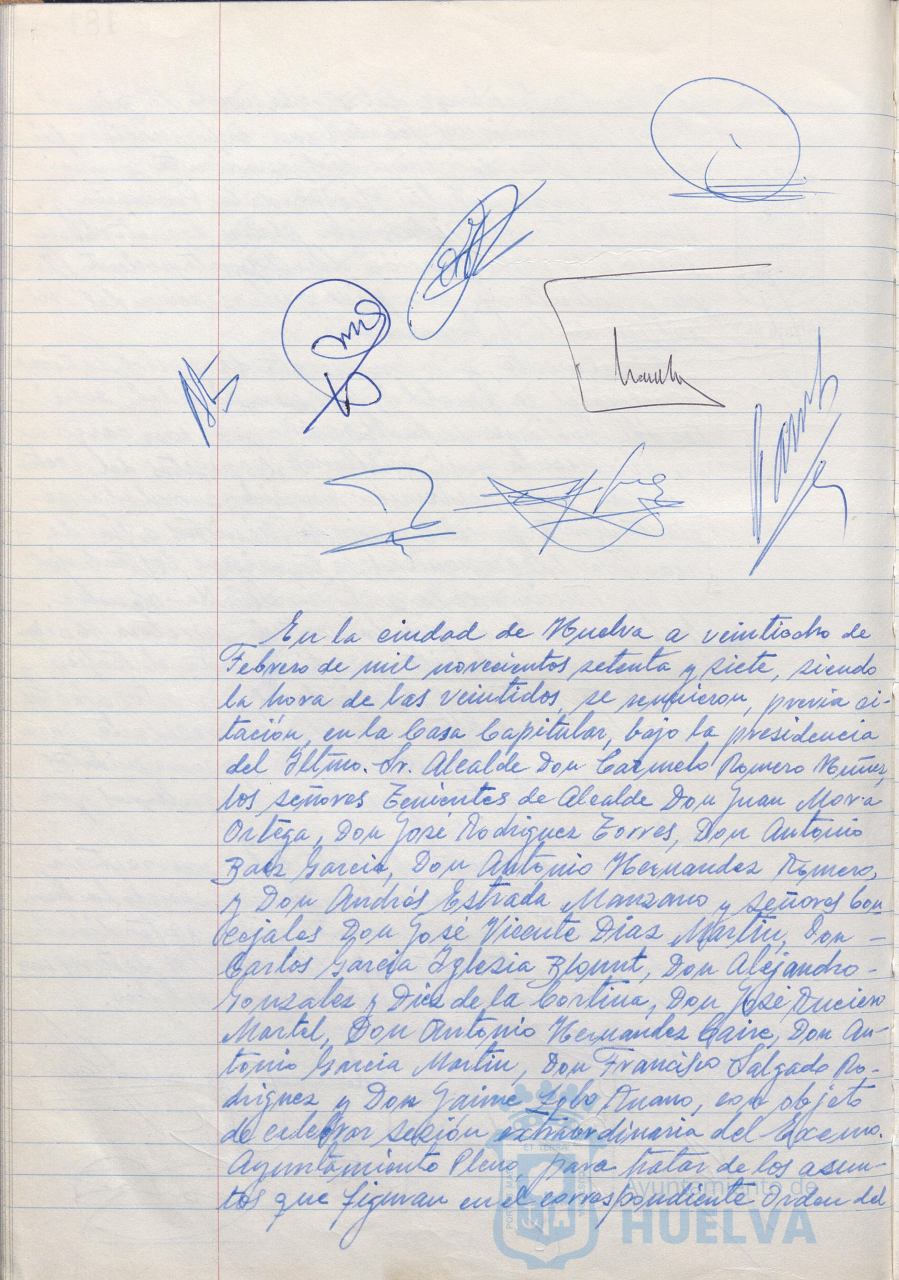 En la ciudad de Huelva a veinticuatro de
Febrero de mil novecientos setenta y siete, siendo
la hora de las veintidos, se reunieron, previa ci-
tación, en la Casa Capitular, bajo la presidencia
del Iltmo. Sr. Alcalde Don Carmelo Romero Nuñez,
los señores Tenientes de Alcalde Don Juan Mora
Ortega, Don José Rodriguez Torres, Don Antonio
Baez Garcia, Don Antonio Hernandez Romero,
y Don Andrés Estrada Manzano y señores Con
cejales Don José Vicente Diaz Martin, Don -
Carlos Garcia Iglesia Blount, Don Alejandro -
Gonzalez y Diez de la Cortina, Don José
Martel, Don Antonio Hernandez Don An-
tonio Garcia Martin, Don Francisco Salgado Ro-
driguez y Don Jaime con objeto
de celebrar sesión extraordinaria del Excmo.
Ayuntamiento Pleno, para tratar de los asun-
tos que figuran en el correspondiente Orden del
Ayuntamiento de
HUELVA